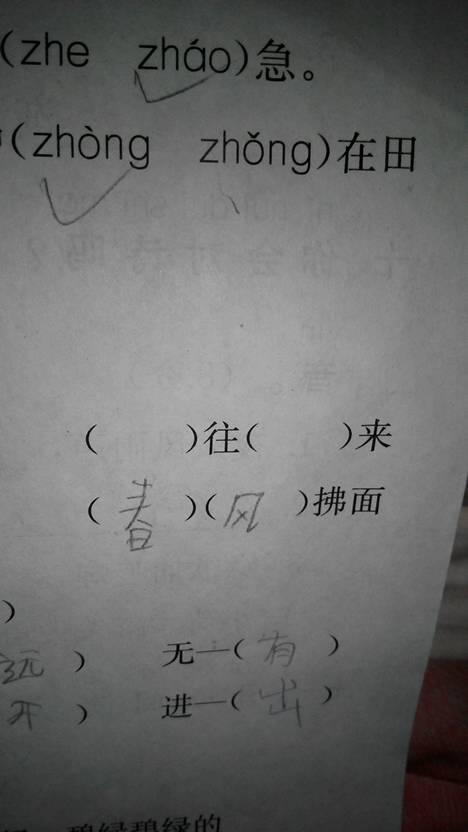 (zhe zháo)急。
(zhòng zhǒng)在田
( )往( )来
(春)(风)拂面
)
远) 无—(有)
开) 进—(出)
碧绿碧绿的